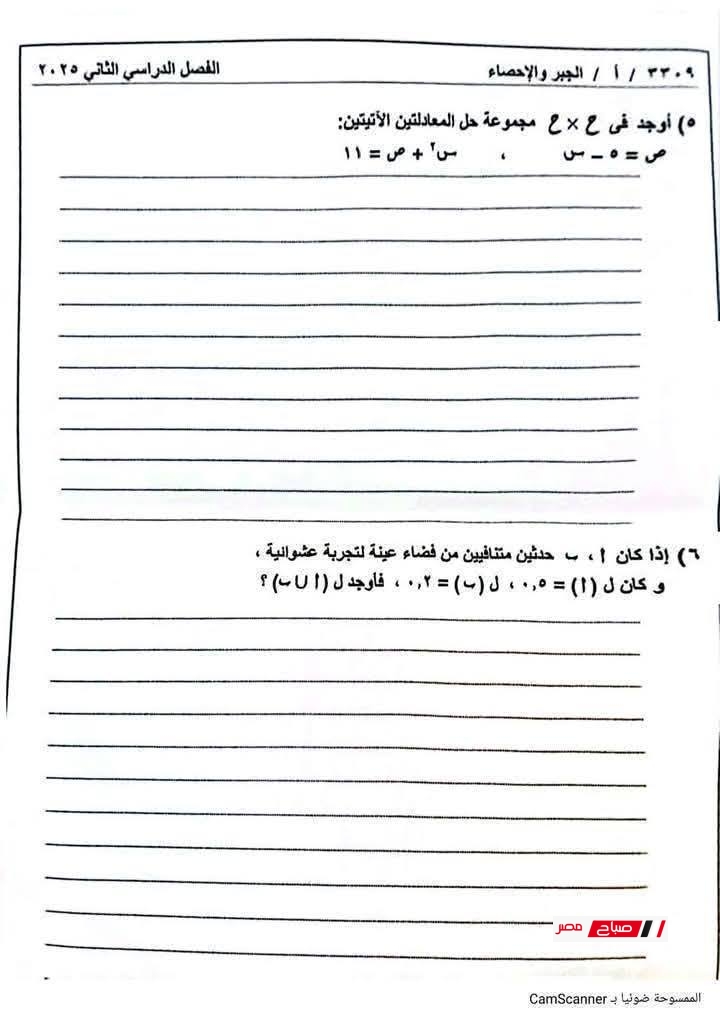 ٣٣٠٩ / أ / الجبر والإحصاء الفصل الدراسي الثاني ٢٠٢٥
٥) أوجد فى ح × ح مجموعة حل المعادلتين الآتيتين:
ص = ٥ – س ، س٢ + ص = ١١
٦) إذا كان ا ، ب حدثين متنافيين من فضاء عينة لتجربة عشوائية ،
و كان ل (ا) = ٠,٥ ، ل (ب) = ٠,٢ ، فأوجد ل (ا ∪ ب) ؟
صباح مصر
الممسوحة ضوئيا بـ CamScanner